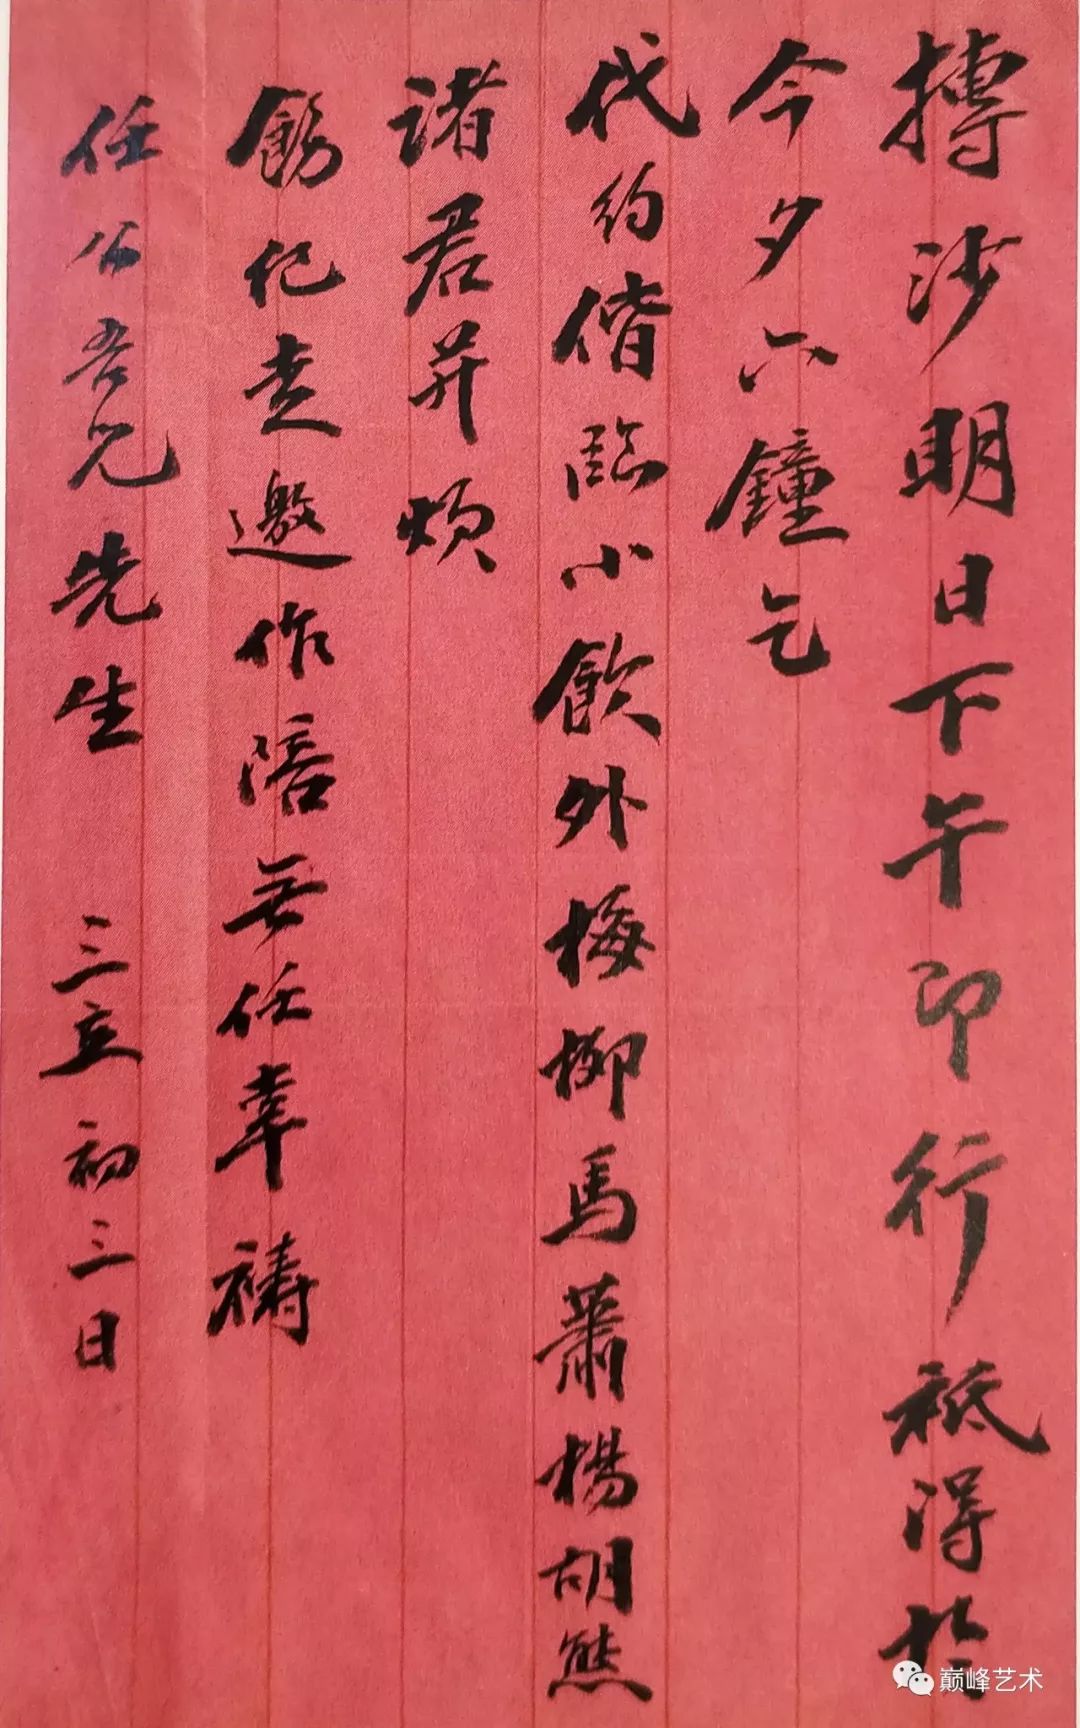 搏沙明日下午即行祗得於
今夕六鐘乞
代約偕臨小飲外梅柳馬蕭楊胡熊
諸君并煩
飭纪走邀作陪無任幸禱
任公吾兄先生 三立 初三日
巅峰艺术